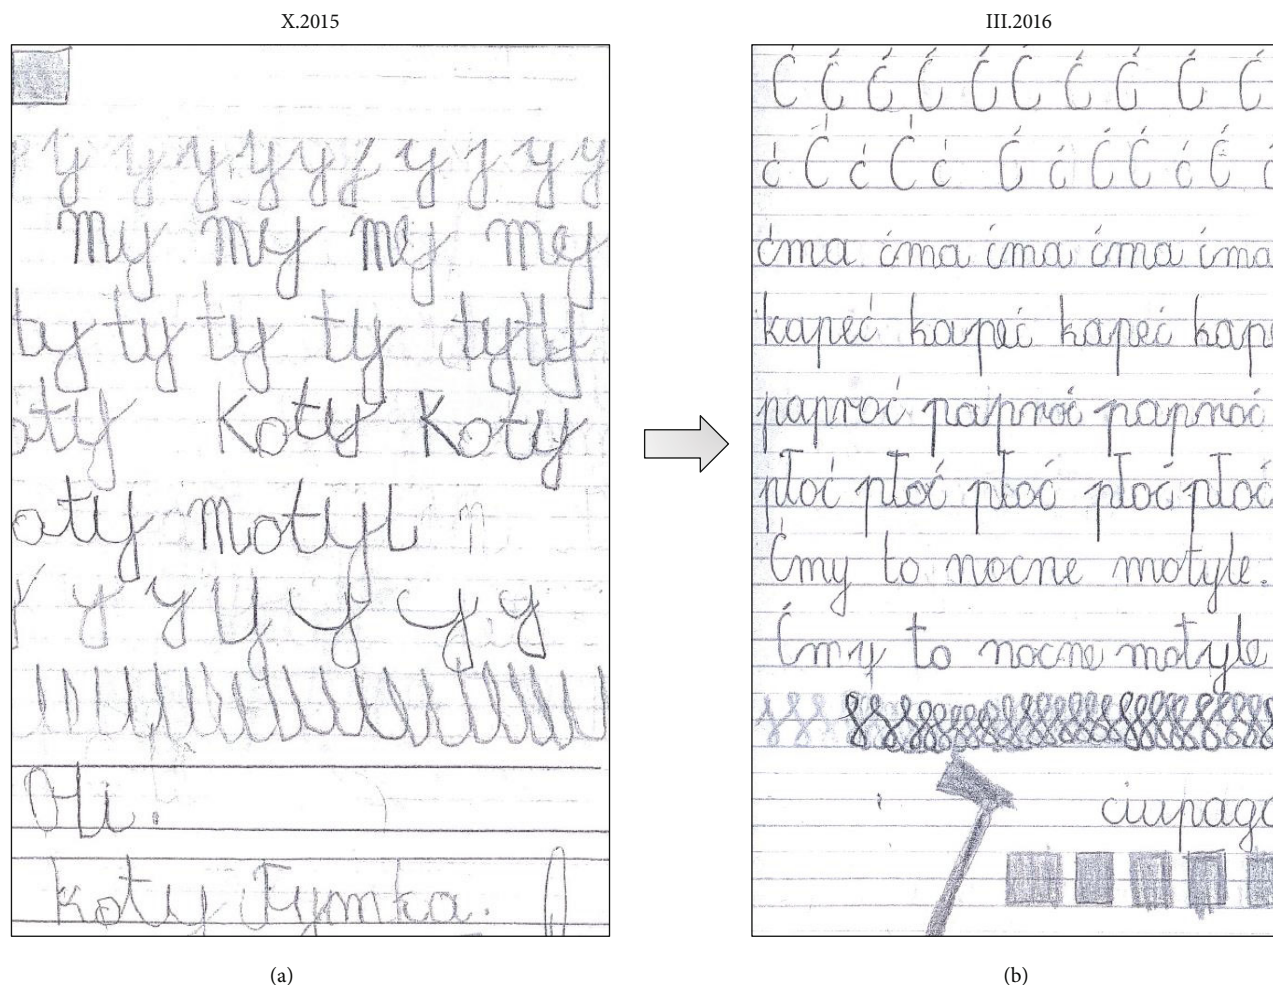 X.2015
y y y y y y y y y y y
my my my my
ty ty ty ty ty ty
oty Koty Koty
oty motyl
y y y y y y y
Oli.
koty Tymka.
(a)
III.2016
Ć Ć Ć Ć Ć Ć Ć Ć Ć Ć
ć Ć ć Ć ć Ć ć Ć Ć ć Ć ć
ćma ćma ćma ćma ćma
kapeć kapeć kapeć kape
paproć paproć paproć
płoć płoć płoć płoć płoć
Ćmy to nocne motyle.
Ćmy to nocne motyle
ciupaga
(b)